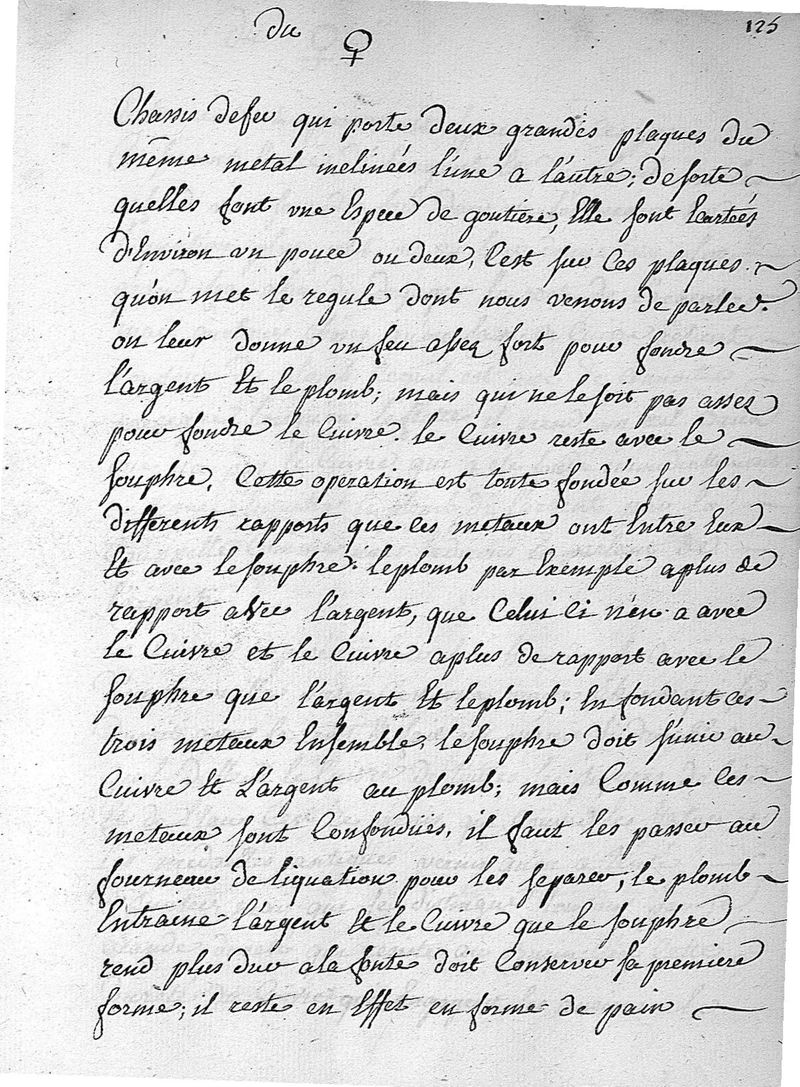 du ♀
125
Chassis defer qui porte deux grandes plaques du
même metal inclinées l'une a l'autre; desorte
quelles font vne Espece de goutiere, Elle sont Ecartées
d'Environ vn pouce ou deux, C'est sur Ces plaques
qu'on met le regule dont nous venons de parler.
on leur donne vn feu assez fort pour fondre
l'argent Et le plomb; mais qui ne le soit pas assez
pour fondre le Cuivre. le Cuivre reste avec le
souphre, Cette operation est toute fondée sur les
differents rapports que ces metaux ont Entre Eux
Et avec le souphre. le plomb par Exemple a plus de
rapport avec l'argent, que Celui Ci n'en a avec
le Cuivre et le Cuivre a plus de rapport avec le
souphre que l'argent Et le plomb; En fondant ces
trois metaux Ensemble, le souphre doit s'unir au
Cuivre Et L'argent au plomb; mais Comme Ces
metaux sont Confondües, il faut les passer au
fourneau de liquation pour les separer, le plomb
Entraine l'argent Et le Cuivre que le souphre
rend plus dur a la fonte doit Conserver sa premiere
forme; il reste en Effet en forme de pain